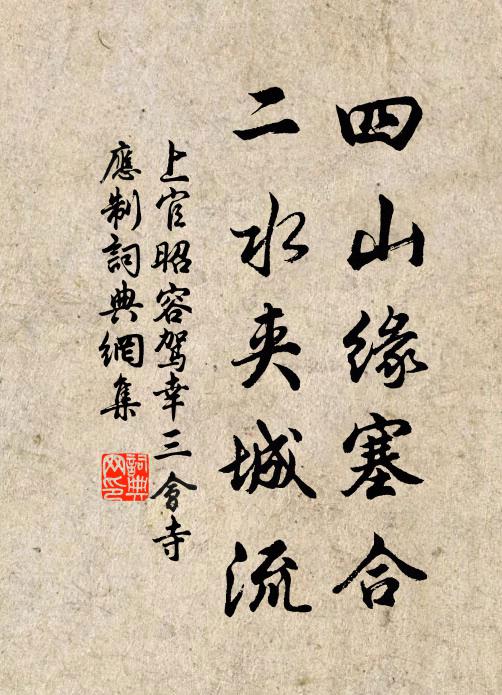 四山緣塞合
二水夾城流
上官昭容駕幸三會寺
應制詞典網集
詞典
网印